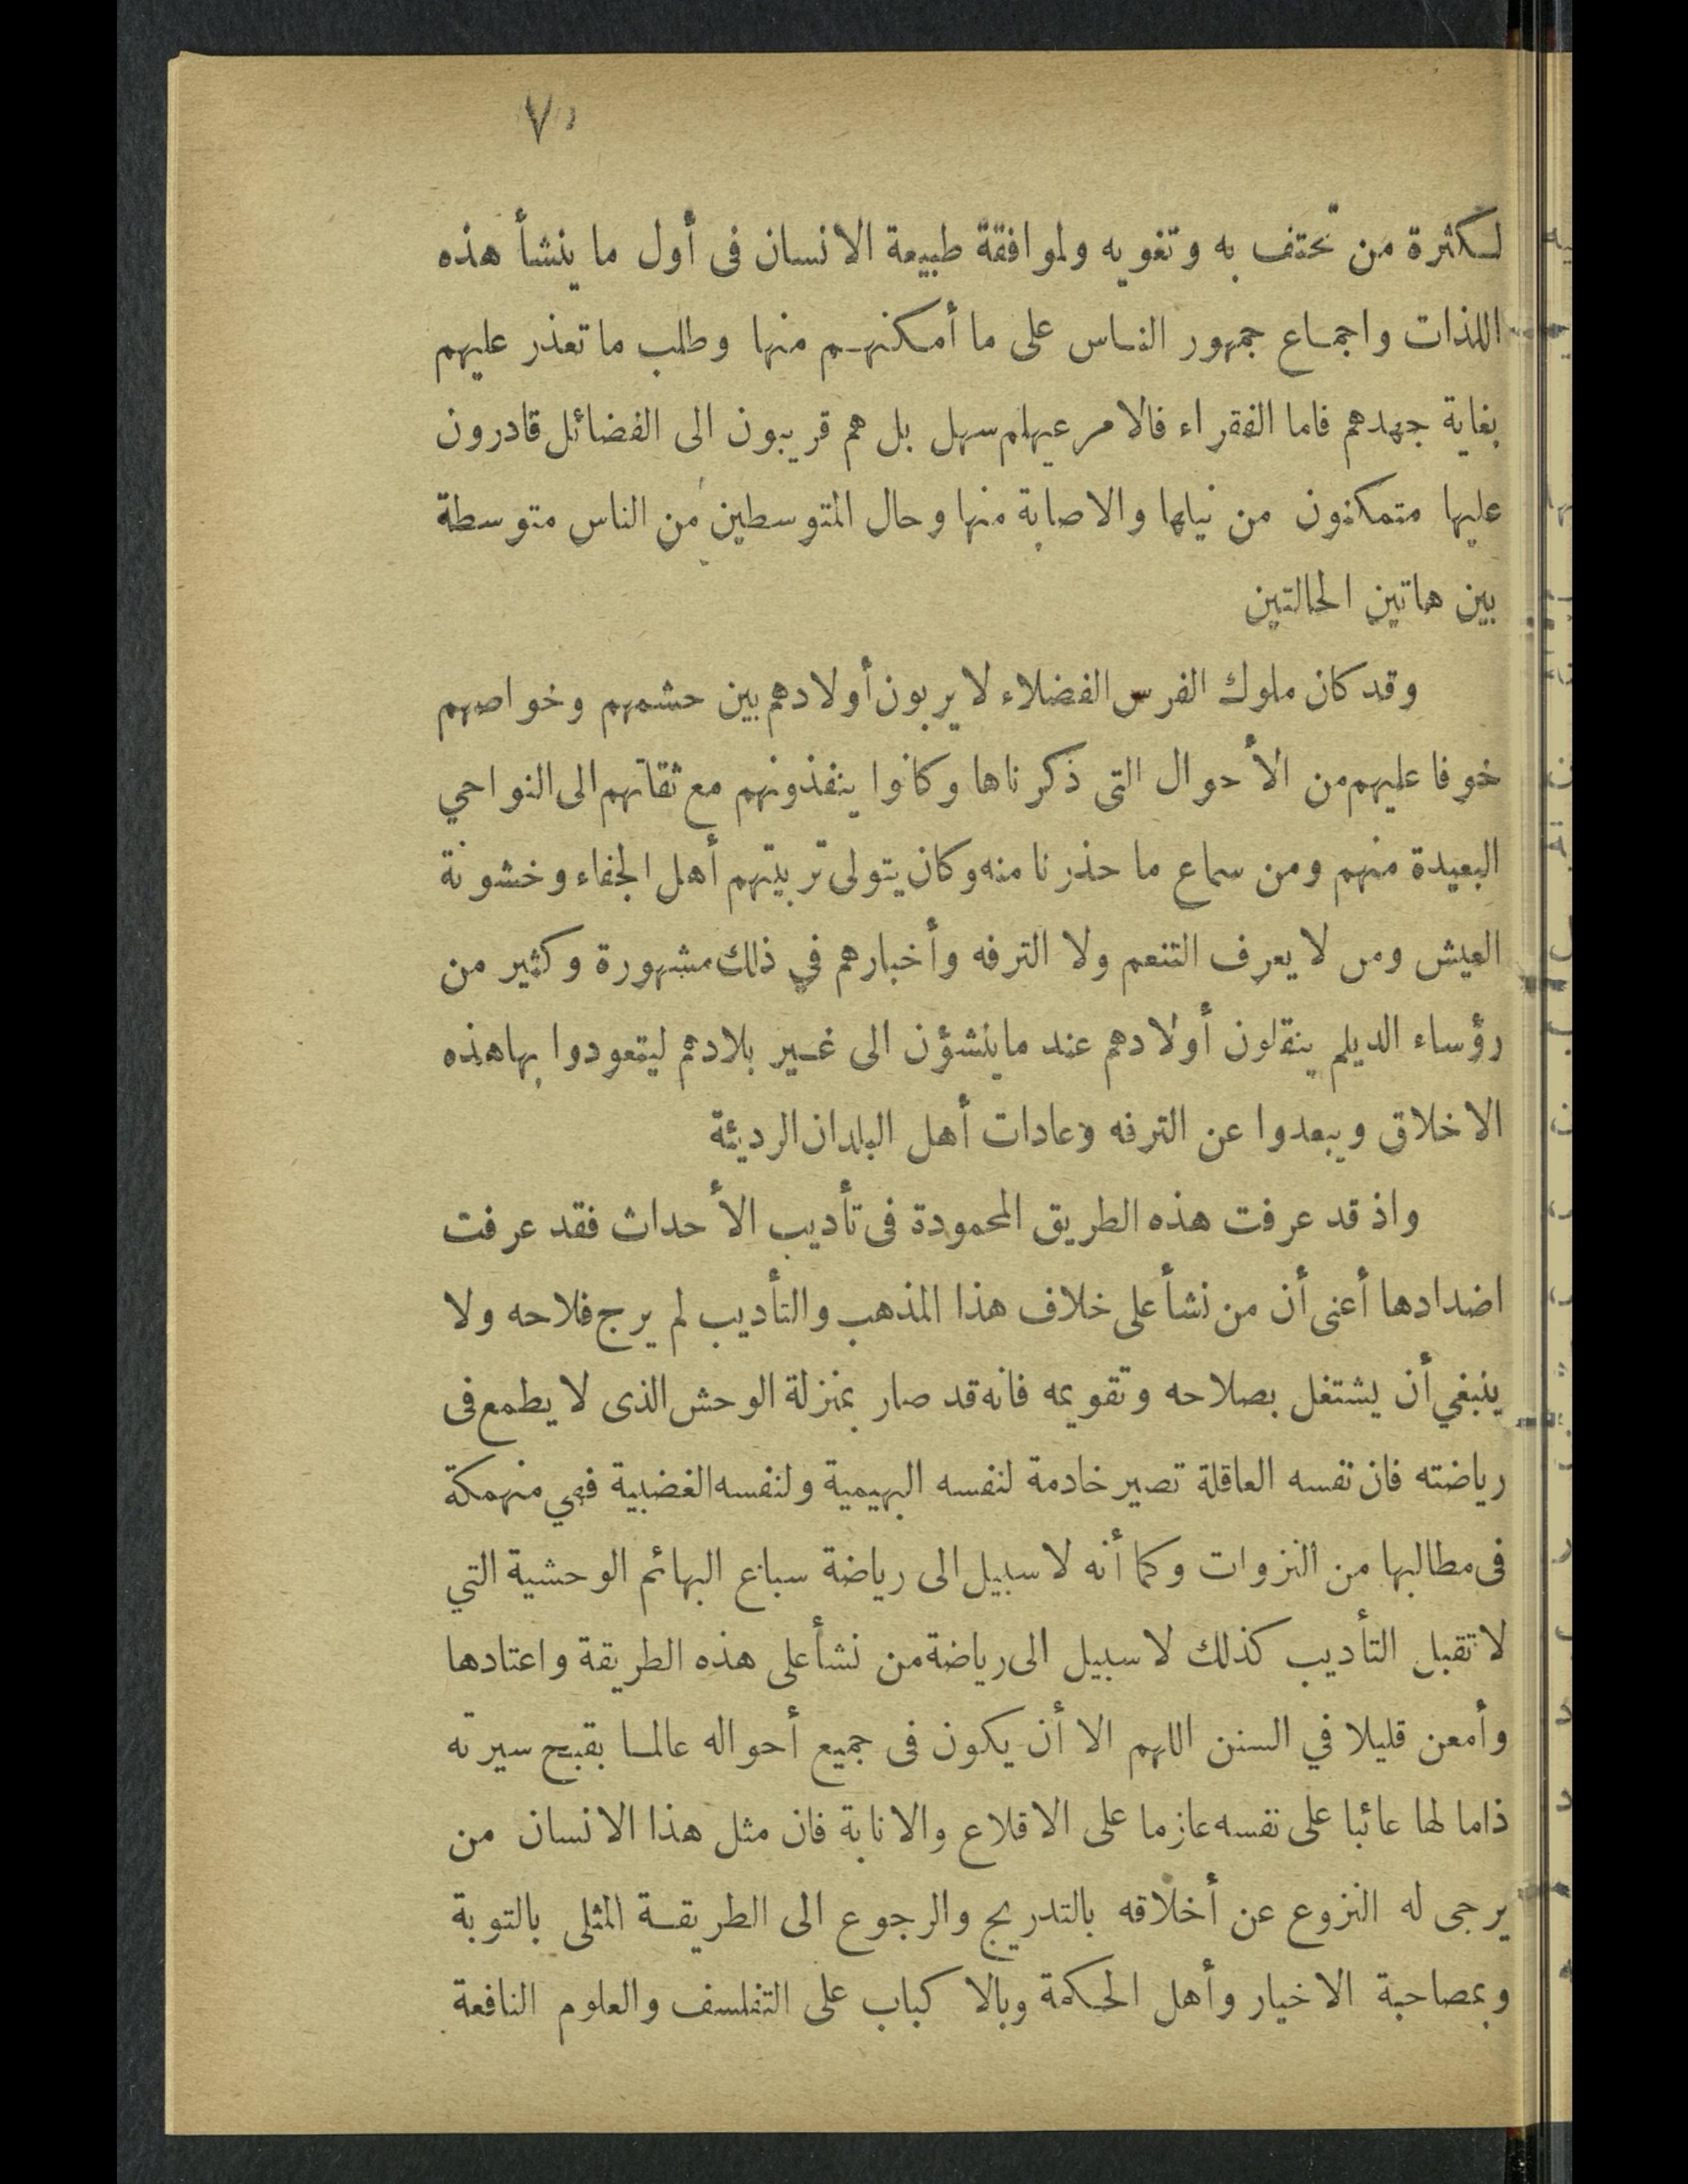 ٧٠
لكثرة من تحتف به وتغويه ولموافقة طبيعة الانسان فى أول ما ينشأ هذه
اللذات واجماع جمهور الناس على ما أمكنهم منها وطلب ما تعذر عليهم
بغاية جهدهم فاما الفقراء فالامر عيلهم سهل بل هم قريبون الى الفضائل قادرون
عليها متمكنون من نيلها والاصابة منها وحال المتوسطين من الناس متوسطة
بين هاتين الحالتين
وقد كان ملوك الفرس الفضلاء لا يربون أولادهم بين حشمهم وخواصهم
خوفا عليهم من الأحوال التى ذكرناها وكانوا ينفذونهم مع ثقاتهم الى النواحي
البعيدة منهم ومن سماع ما حذرنا منه وكان يتولى تربيتهم أهل الجفاء وخشونة
العيش ومن لا يعرف التنعم ولا الترفه وأخبارهم في ذلك مشهورة وكثير من
رؤساء الديلم ينقلون أولادهم عند ما ينشؤن الى غير بلادهم ليتعودوا بها هذه
الاخلاق ويبعدوا عن الترفه وعادات أهل البلدان الرديئة
واذ قد عرفت هذه الطريق المحمودة فى تأديب الأحداث فقد عرفت
اضدادها أعنى أن من نشأ على خلاف هذا المذهب والتأديب لم يرج فلاحه ولا
ينبغي أن يشتغل بصلاحه وتقويمه فانه قد صار بمنزلة الوحش الذى لا يطمع فى
رياضته فان نفسه العاقلة تصير خادمة لنفسه البهيمية ولنفسه الغضبية فهي منهمكة
فى مطالبها من النزوات وكما أنه لا سبيل الى رياضة سباع البهائم الوحشية التي
لا تقبل التأديب كذلك لا سبيل الى رياضة من نشأ على هذه الطريقة واعتادها
وأمعن قليلا في السنن اللهم الا أن يكون فى جميع أحواله عالما بقبح سيرته
ذاما لها عائبا على نفسه عازما على الاقلاع والانابة فان مثل هذا الانسان من
يرجى له النزوع عن أخلاقه بالتدريج والرجوع الى الطريقة المثلى بالتوبة
وبمصاحبة الاخيار وأهل الحكمة وبالا كباب على التفلسف والعلوم النافعة